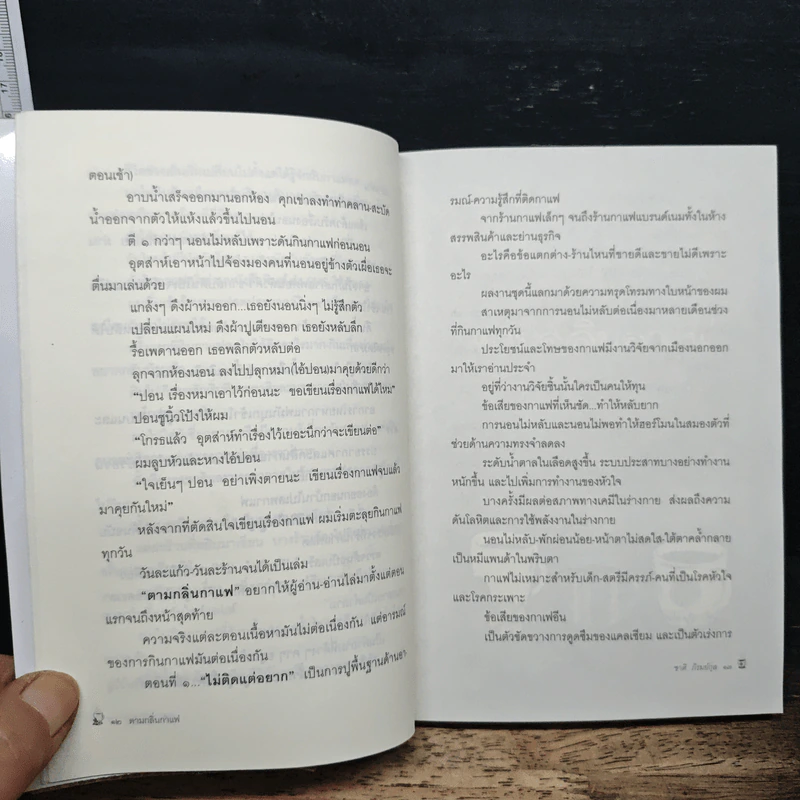 ตอนเช้า)
อาบน้ำเสร็จออกมานอกห้อง คุกเข่าลงทำท่าคลาน-สะบัด
น้ำออกจากตัวให้แห้งแล้วขึ้นไปนอน
ตี ๑ กว่าๆ นอนไม่หลับเพราะดันกินกาแฟก่อนนอน
อุตส่าห์เอาหน้าไปจ้องมองคนที่นอนอยู่ข้างตัวเผื่อเธอจะ
ตื่นมาเล่นด้วย
แกล้งๆ ดึงผ้าห่มออก...เธอยังนอนนิ่งๆ ไม่รู้สึกตัว
เปลี่ยนแผนใหม่ ดึงผ้าปูเตียงออก เธอยังหลับลึก
รื้อเพดานออก เธอพลิกตัวหลับต่อ
ลุกจากห้องนอน ลงไปปลุกหมา(ไอ้ปอน)มาคุยด้วยดีกว่า
"ปอน เรื่องหมาเอาไว้ก่อนนะ ขอเขียนเรื่องกาแฟได้ไหม"
ปอนชูนิ้วโป้งให้ผม
"โกรธแล้ว อุตส่าห์ทำเรื่องไว้เยอะนึกว่าจะเขียนต่อ"
ผมลูบหัวและหางไอ้ปอน
"ใจเย็นๆ ปอน อย่าเพิ่งตายนะ เขียนเรื่องกาแฟจบแล้ว
มาคุยกันใหม่"
หลังจากที่ตัดสินใจเขียนเรื่องกาแฟ ผมเริ่มตะลุยกินกาแฟ
ทุกวัน
วันละแก้ว-วันละร้านจนได้เป็นเล่ม
"ตามกลิ่นกาแฟ" อยากให้ผู้อ่าน-อ่านไล่มาตั้งแต่ตอน
แรกจนถึงหน้าสุดท้าย
ความจริงแต่ละตอนเนื้อหามันไม่ต่อเนื่องกัน แต่อารมณ์
ของการกินกาแฟมันต่อเนื่องกัน
ตอนที่ ๑..."ไม่ติดแต่อยาก" เป็นการปูพื้นฐานด้านอา-
๑๒ ตามกลิ่นกาแฟ
รมณ์-ความรู้สึกที่ติดกาแฟ
จากร้านกาแฟเล็กๆ จนถึงร้านกาแฟแบรนด์เนมทั้งในห้าง
สรรพสินค้าและย่านธุรกิจ
อะไรคือข้อแตกต่าง-ร้านไหนที่ขายดีและขายไม่ดีเพราะ
อะไร
ผลงานชุดนี้แลกมาด้วยความทรุดโทรมทางใบหน้าของผม
สาเหตุมาจากการนอนไม่หลับต่อเนื่องมาหลายเดือนช่วง
ที่กินกาแฟทุกวัน
ประโยชน์และโทษของกาแฟมีงานวิจัยจากเมืองนอกออก
มาให้เราอ่านประจำ
อยู่ที่ว่างานวิจัยชิ้นนั้นใครเป็นคนให้ทุน
ข้อเสียของกาแฟที่เห็นชัด...ทำให้หลับยาก
การนอนไม่หลับและนอนไม่พอทำให้ฮอร์โมนในสมองตัวที่
ช่วยด้านความทรงจำลดลง
ระดับน้ำตาลในเลือดสูงขึ้น ระบบประสาทบางอย่างทำงาน
หนักขึ้น และไปเพิ่มการทำงานของหัวใจ
บางครั้งมีผลต่อสภาพทางเคมีในร่างกาย ส่งผลถึงความ
ดันโลหิตและการใช้พลังงานในร่างกาย
นอนไม่หลับ-พักผ่อนน้อย-หน้าตาไม่สดใส-ใต้ตาคล้ำกลาย
เป็นหมีแพนด้าในพริบตา
กาแฟไม่เหมาะสำหรับเด็ก-สตรีมีครรภ์-คนที่เป็นโรคหัวใจ
และโรคกระเพาะ
ข้อเสียของกาเฟอีน
เป็นตัวขัดขวางการดูดซึมของแคลเซียม และเป็นตัวเร่งการ
ชาติ ภิรมย์กุล ๑๓
17